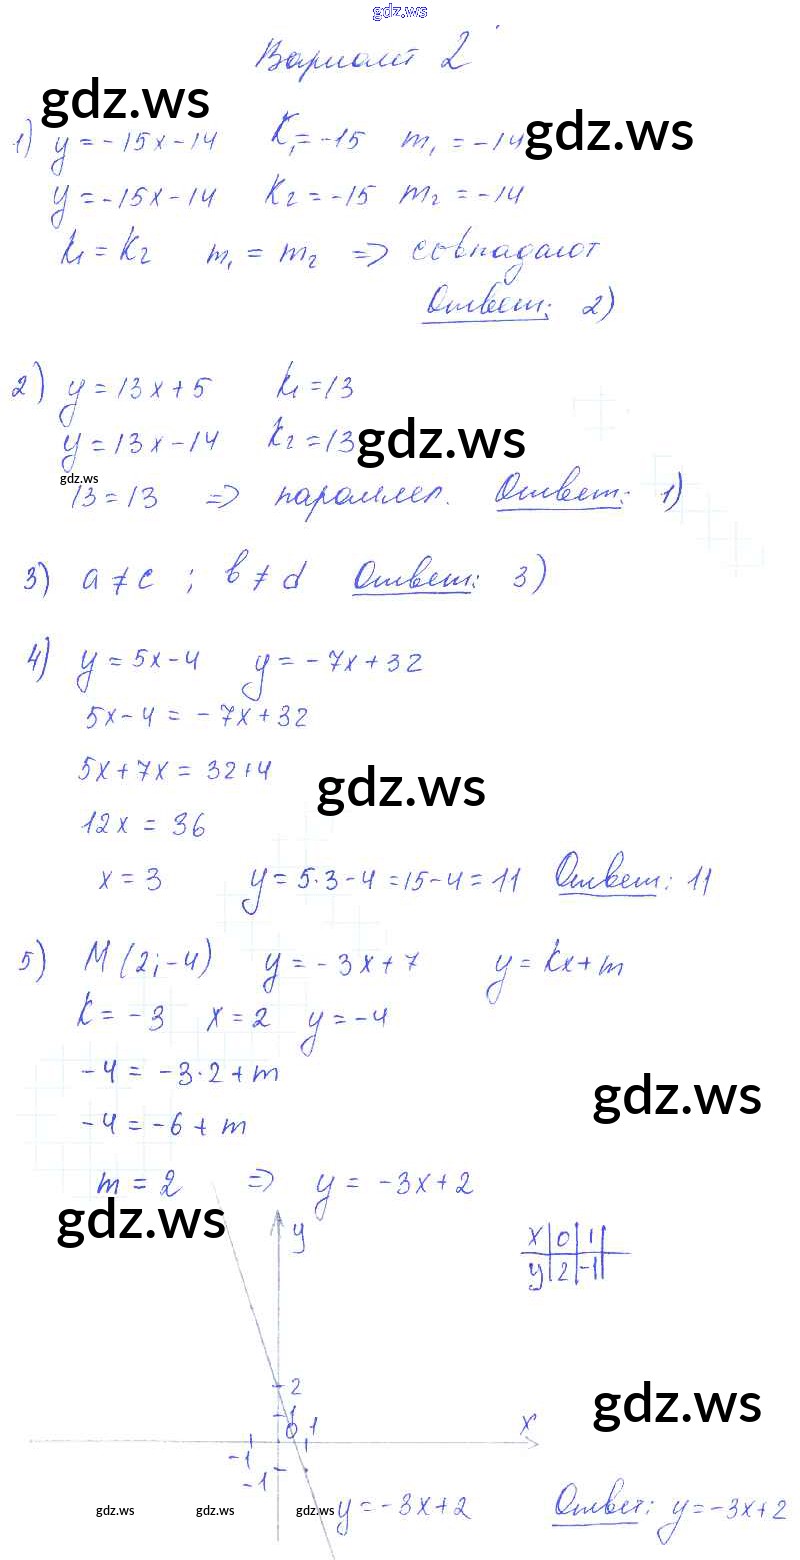 gdz.ws
Вариант 2
gdz.ws
1) y = -15x - 14 K₁ = -15 m₁ = -14
gdz.ws
y = -15x - 14 K₂ = -15 m₂ = -14
k₁ = K₂ m₁ = m₂ => совпадают
Ответ: 2)
2) y = 13x + 5 k₁ = 13
y = 13x - 14 K₂ = 13
gdz.ws
gdz.ws
13 = 13 => параллел. Ответ: 1)
3) a ≠ c ; b ≠ d Ответ: 3)
4) y = 5x - 4 y = -7x + 32
5x - 4 = -7x + 32
5x + 7x = 32 + 4
gdz.ws
12x = 36
x = 3 y = 5·3 - 4 = 15 - 4 = 11 Ответ: 11
5) M (2; -4) y = -3x + 7 y = kx + m
k = -3 x = 2 y = -4
-4 = -3·2 + m
gdz.ws
-4 = -6 + m
m = 2 => y = -3x + 2
gdz.ws
y
x 0 1
y 2 -1
2
gdz.ws
1
0 1 x
-1
-1
gdz.ws gdz.ws gdz.ws
y = -3x + 2 Ответ: y = -3x + 2